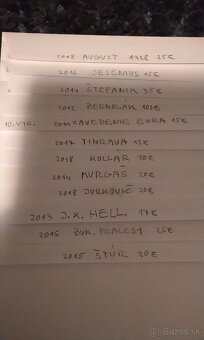 2018 AUGUST 1968 25€
2016 JESENIUS 15€
2014 ŠTEPANÍK 35€
2012 BERNOLÁK 100€
10. VÝR. ZAVEDENIE EURA 15€
2017 TIMRAVA 15€
KOLLÁR 30€
2014 MURGAŠ 20€
2018 JURKOVIČ 20€
2013 J.K. HELL 17€
2015 BUK. PRALESY 25€
2015 ŠTÚR 20€
bazos.sk